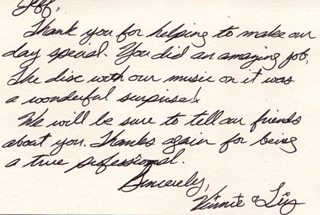 Jeff,
Thank you for helping to make our
day special. You did an amazing job.
The disc with our music on it was
a wonderful surprise!
We will be sure to tell our friends
about you. Thanks again for being
a true professional.
Sincerely,
Vinnie & Liz